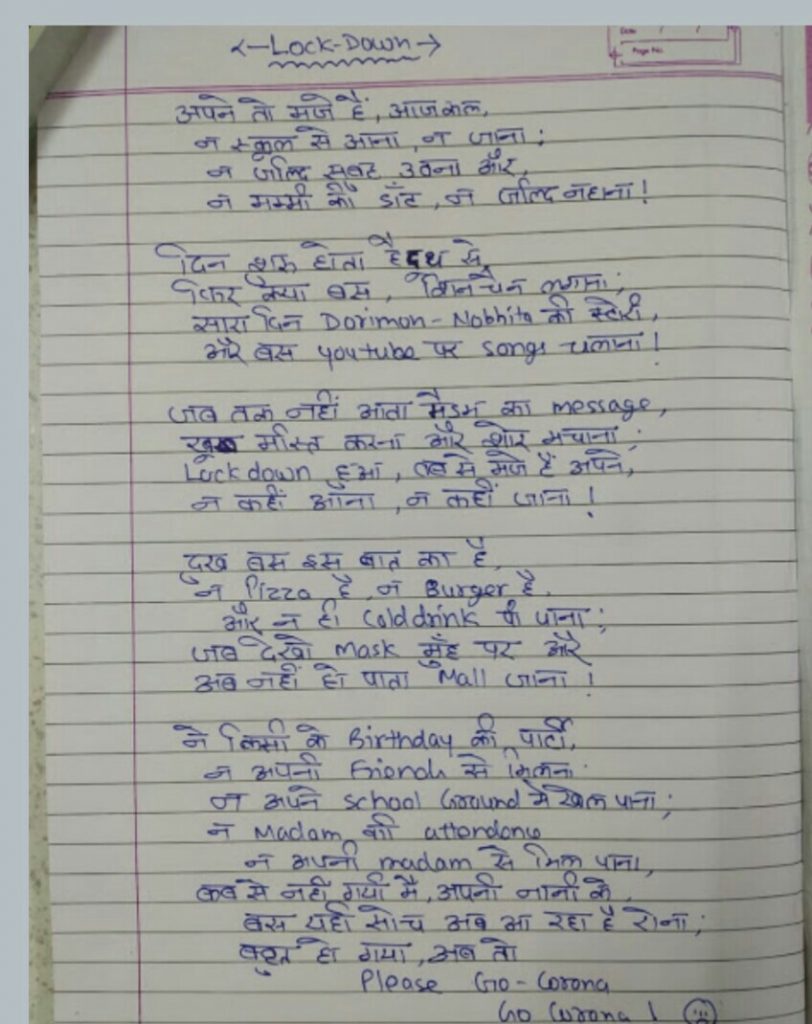 <-Lock-Down->
Date / /
Page No.
अपने तो मजे हैं, आजकल,
न स्कूल से आना, न जाना;
न जल्दि सुबह उठना और,
न मम्मी की डाँट, न जल्दि नहाना!
दिन शुरू होता है दूध से,
फिर क्या बस, शिनचैन लगाना;
सारा दिन Dorimon-Nobhita की स्टोरी,
और बस youtube पर songs चलाना!
जब तक नहीं आता मैडम का message,
खूब मस्ति करना और शोर मचाना;
Lockdown हुआ, तब से मजे हैं अपने,
न कहीं आना, न कहीं जाना!
दुख बस इस बात का है,
न Pizza है, न Burger है,
और न ही Colddrink पी पाना;
जब देखो Mask मुँह पर और
अब नहीं हो पाता Mall जाना!
न किसी के Birthday की पार्टी,
न अपनी Friends से मिलना
न अपने school Ground में खेल पाना;
न Madam की attendance
न अपनी madam से मिल पाना,
कब से नहीं गयी मैं, अपनी नानी के,
बस यही सोच अब आ रहा है रोना;
बहुत हो गया, अब तो
Please Go-Corona
Go Corona!